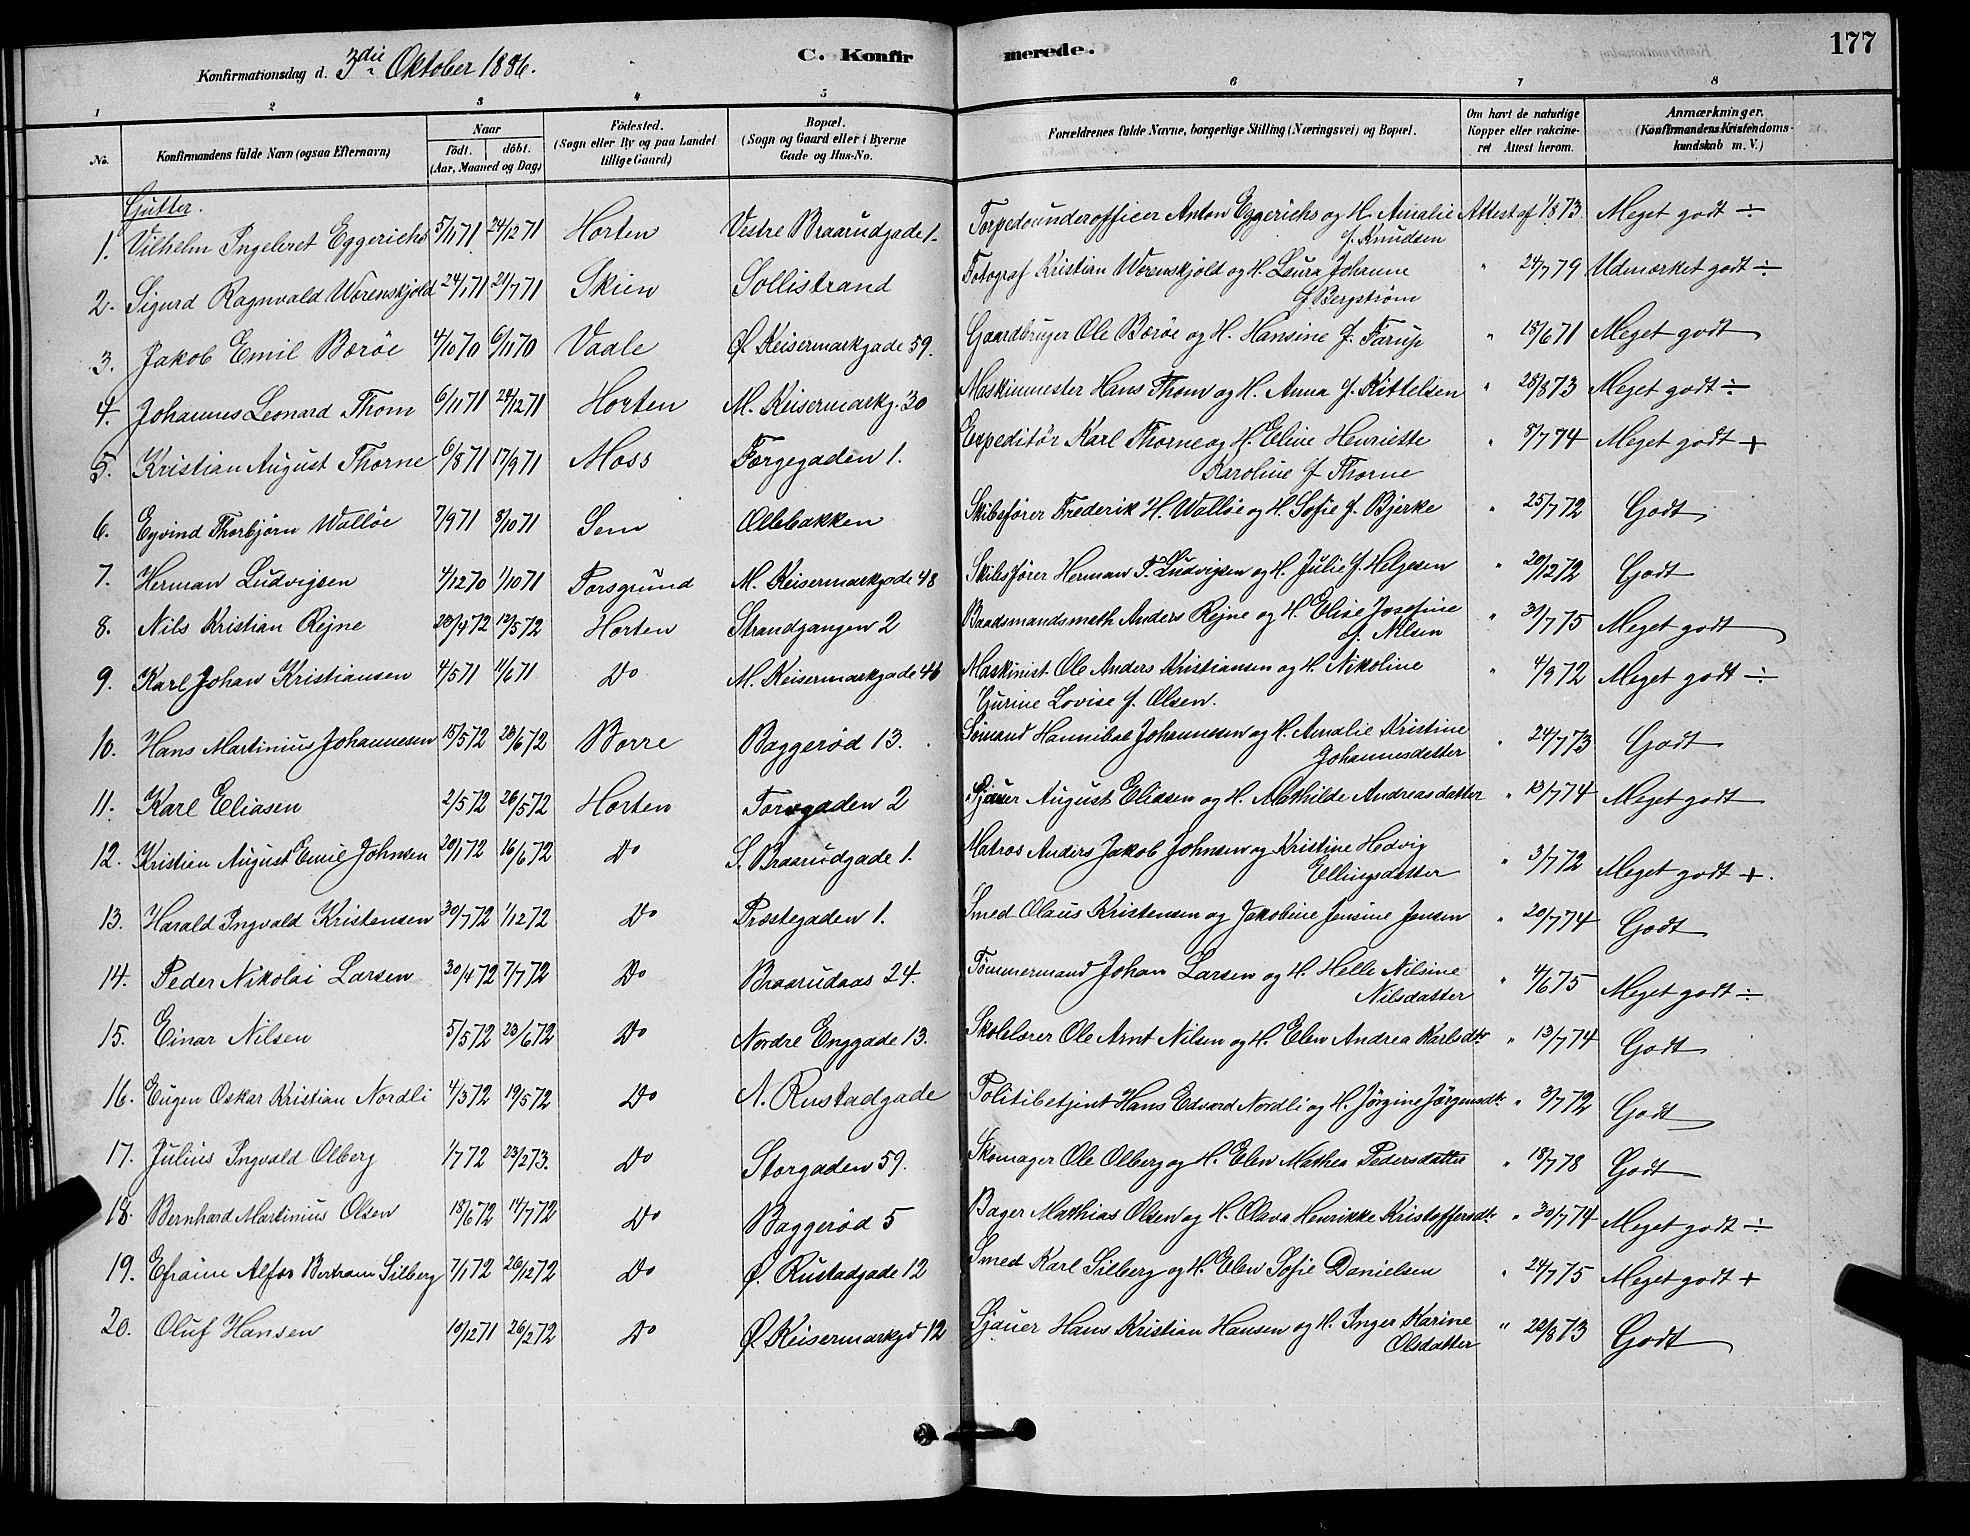 Konfirmationsdag d. 3die Oktober 1886. C. Konfirmerede. 177
1 2 3 4 5 6 7 8
No. Konfirmandens fulde Navn (ogsaa Efternavn) Naar födt. döbt. (Aar, Maaned og Dag) Födested. (Sogn eller By og paa Landet tillige Gaard) Bopæl. (Sogn og Gaard eller i Byerne Gade og Hus-No. Forældrenes fulde Navne, borgerlige Stilling (Næringsvei) og Bopæl. Om havt de naturlige Kopper eller vakcineret Attest herom. Anmærkninger. (Konfirmandens Kristendomskundskab m. V.)
Gutter.
1. Vilhelm Ingebret Eggerichs 5/11 71 24/12 71 Horten Vestre Braarudgade 1. Torpedounderofficer Anton Eggerichs og H. Amalie Attest af 1/8 73. Meget godt ÷
f. Knudsen
2. Sigurd Ragnvald Worenskjold 24/1 71 21/7 71 Skien Sollistrand Fotograf Kristian Worenskjold og H. Laura Johanne " 24/7 79 Udmærket godt ÷
f. Bergström
3. Jakob Emil Böröe 4/10 70 6/11 70 Vaale Ø. Keisermarkgade 59. Gaardbruger Ole Böröe og H. Hansine f. Farup " 15/6 71 Meget godt
4. Johannes Leonard Thom 6/11 71 28/12 71 Horten M. Keisermarkg. 30 Maskinmester Hans Thom og H. Anna f. Kittelsen " 28/8 73 Meget godt ÷
5. Kristian August Thorne 6/8 71 17/9 71 Moss Færgegaden 1. Expeditör Karl Thorne og H. Eline Henriette " 8/7 74 Meget godt +
Karoline f Thorne
6. Eyvind Thorbjörn Wallöe 7/9 71 8/10 71 Sem Ollebakken Skibsförer Frederik H. Wallöe og H. Sofie f. Bjerke " 25/7 72 Godt
7. Herman Ludvigsen 4/12 70 1/10 71 Porsgrund M. Keisermarkgade 48 Skibsförer Herman T. Ludvigsen og H. Julie f. Helgesen " 20/12 72 Godt
8. Nils Kristian Rejne 20/4 72 12/5 72 Horten Strandgangen 2 Baadsmandsmath Anders Rejne og H. Elise Josefine " 31/7 75 Meget godt
f. Nilsen
9. Karl Johan Kristiansen 4/5 71 11/6 71 Do M. Keisermarkgade 46 Maskinist Ole Anders Kristiansen og H. Nikoline " 4/9 72 Meget godt ÷
Gurine Lovise f. Olsen.
10. Hans Martinius Johannesen 15/5 72 23/6 72 Borre Baggeröd 13. Sömand Hannibal Johannesen og H. Amalie Kristine " 24/7 73 Godt
Johannesdatter
11. Karl Eliasen 2/5 72 26/5 72 Horten Torvgaden 2 Sjauer August Eliasen og H. Mathilde Andreasdatter " 13/7 74 Meget godt
12. Kristian August Emil Johnsen 20/1 72 16/6 72 Do S. Braarudgade 1. Matros Anders Jakob Johnsen og Kristine Hedvig " 3/7 72 Meget godt +.
Ellingsdatter
13. Harald Ingvald Kristensen 30/7 72 1/12 72 Do Præstegaden 1. Smed Olaus Kristensen og Jakobine Jensine Jensen " 20/7 74 Godt
14. Peder Nikolai Larsen 30/4 72 7/7 72 Do Braarudaas 24. Tömmermand Johan Larsen og H. Helle Nilsine " 4/6 75 Meget godt ÷
Nilsdatter
15. Einar Nilsen 5/5 72 23/6 72 Do Nordre Enggade 13. Skolelærer Ole Arnt Nilsen og H. Elen Andrea Karlsdtr " 13/7 74 Godt
16. Eugen Oskar Kristian Nordli 4/3 72 19/5 72 Do N. Rustadgade Politibetjent Hans Edvard Nordli og H. Jörgine Jörgensdtr. " 3/7 72 Godt
17. Julius Ingvald Olberg 1/7 72 23/2 73. Do Storgaden 59. Skomager Ole Olberg og H. Elen Mathea Pedersdatter " 18/7 78 Godt
18. Bernhard Martinius Olsen 18/6 72 14/7 72 Do Baggeröd 5 Bager Mathias Olsen og H. Olava Henrikke Kristoffersdtr. " 30/7 74 Meget godt ÷
19. Efraim Alfor Bertram Silberg 7/1 72 26/12 72 Do Ø. Rustadgade 12 Smed Karl Silberg og H. Elen Sofie Danielsen " 24/7 75 Meget godt +
20. Oluf Hansen 19/12 71 26/2 72 Do Ø. Keisermarkgd 12 Sjauer Hans Kristian Hansen og H. Inger Karine " 22/8 73 Godt
Olsdatter